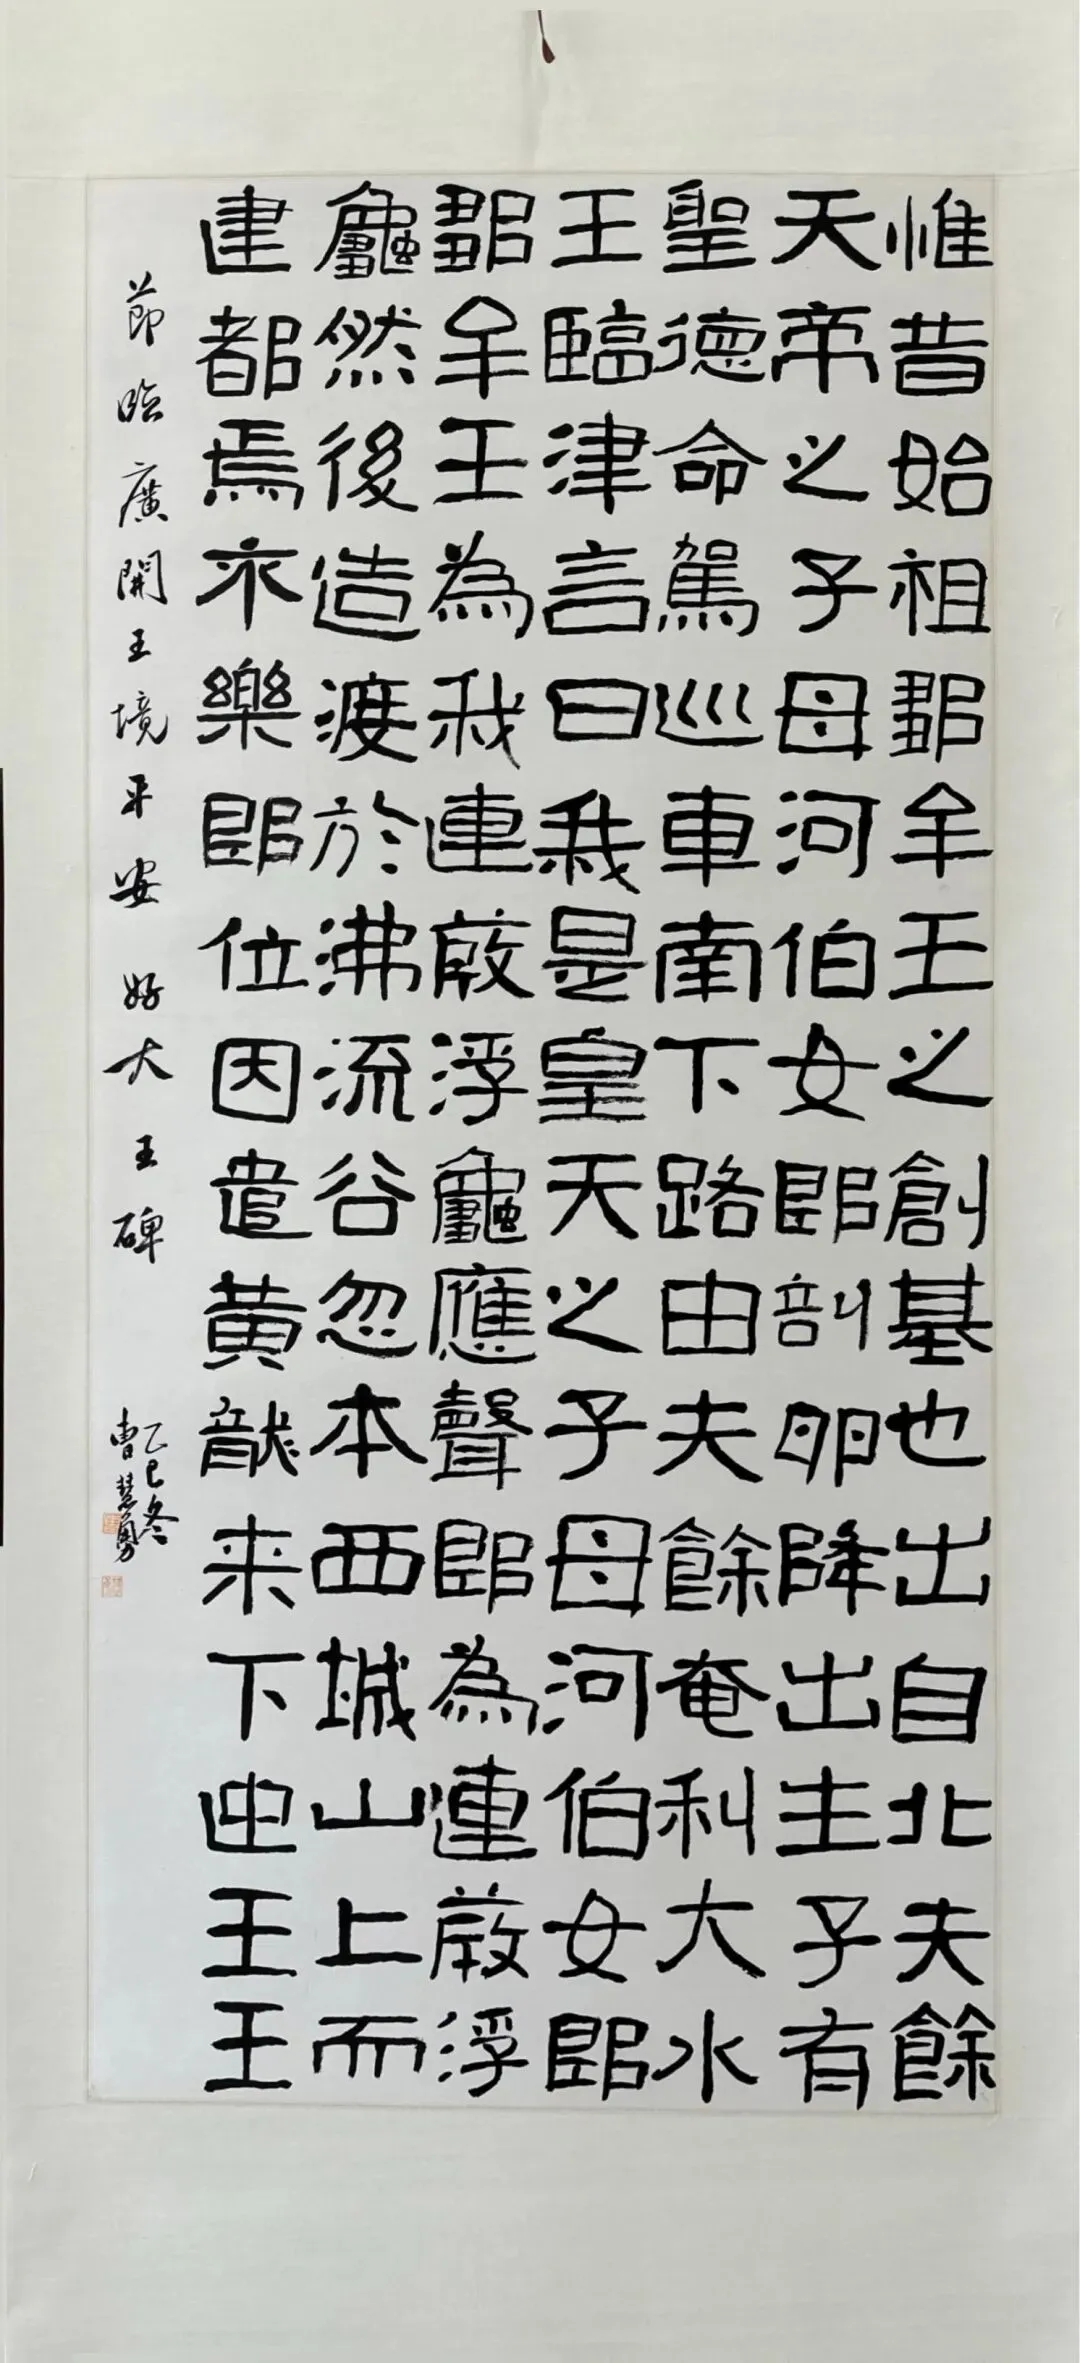 惟昔始祖鄒牟王之創基也出自北夫餘
天帝之子母河伯女郎剖卵降出主子有
聖德命駕巡車南下路由夫餘奄利大水
王臨津言曰我是皇天之子母河伯女郎
鄒牟王為我連葭浮龜應聲即為連葭浮
龜然後造渡於沸流谷忽本西城山上而
建都焉不樂即位因遣黃龍来下迎王王
節臨廣開王境平安好大王碑
乙巳冬
曹慧勇